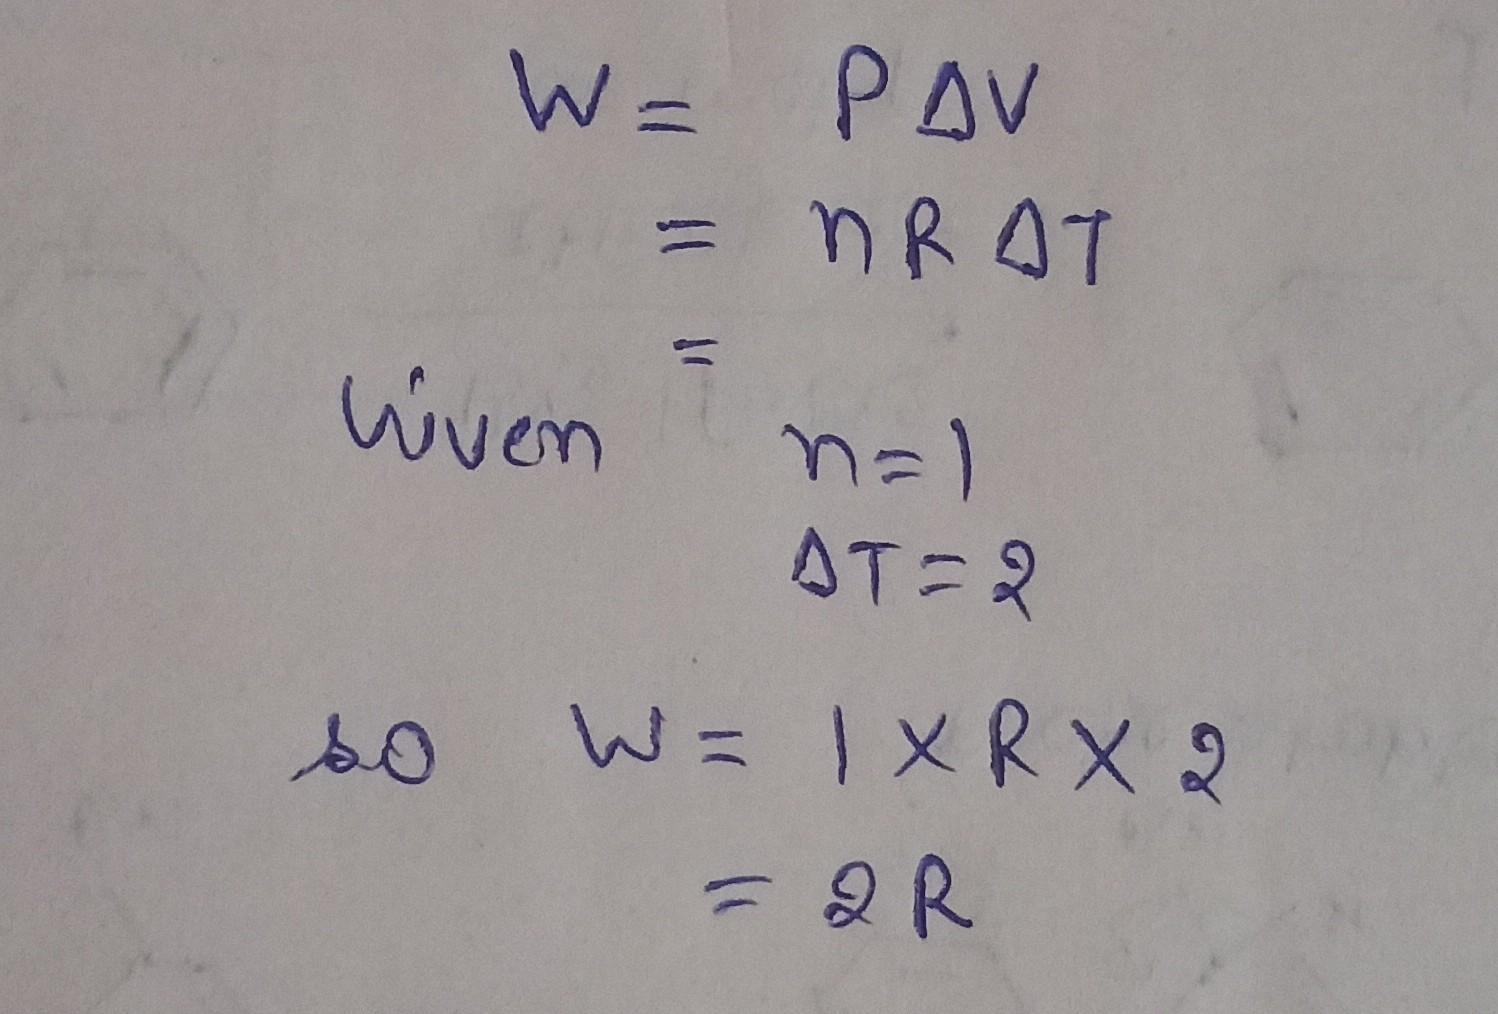 W = PΔV
= nRΔT
=
Given n=1
ΔT=2
so W = 1 x R x 2
= 2R